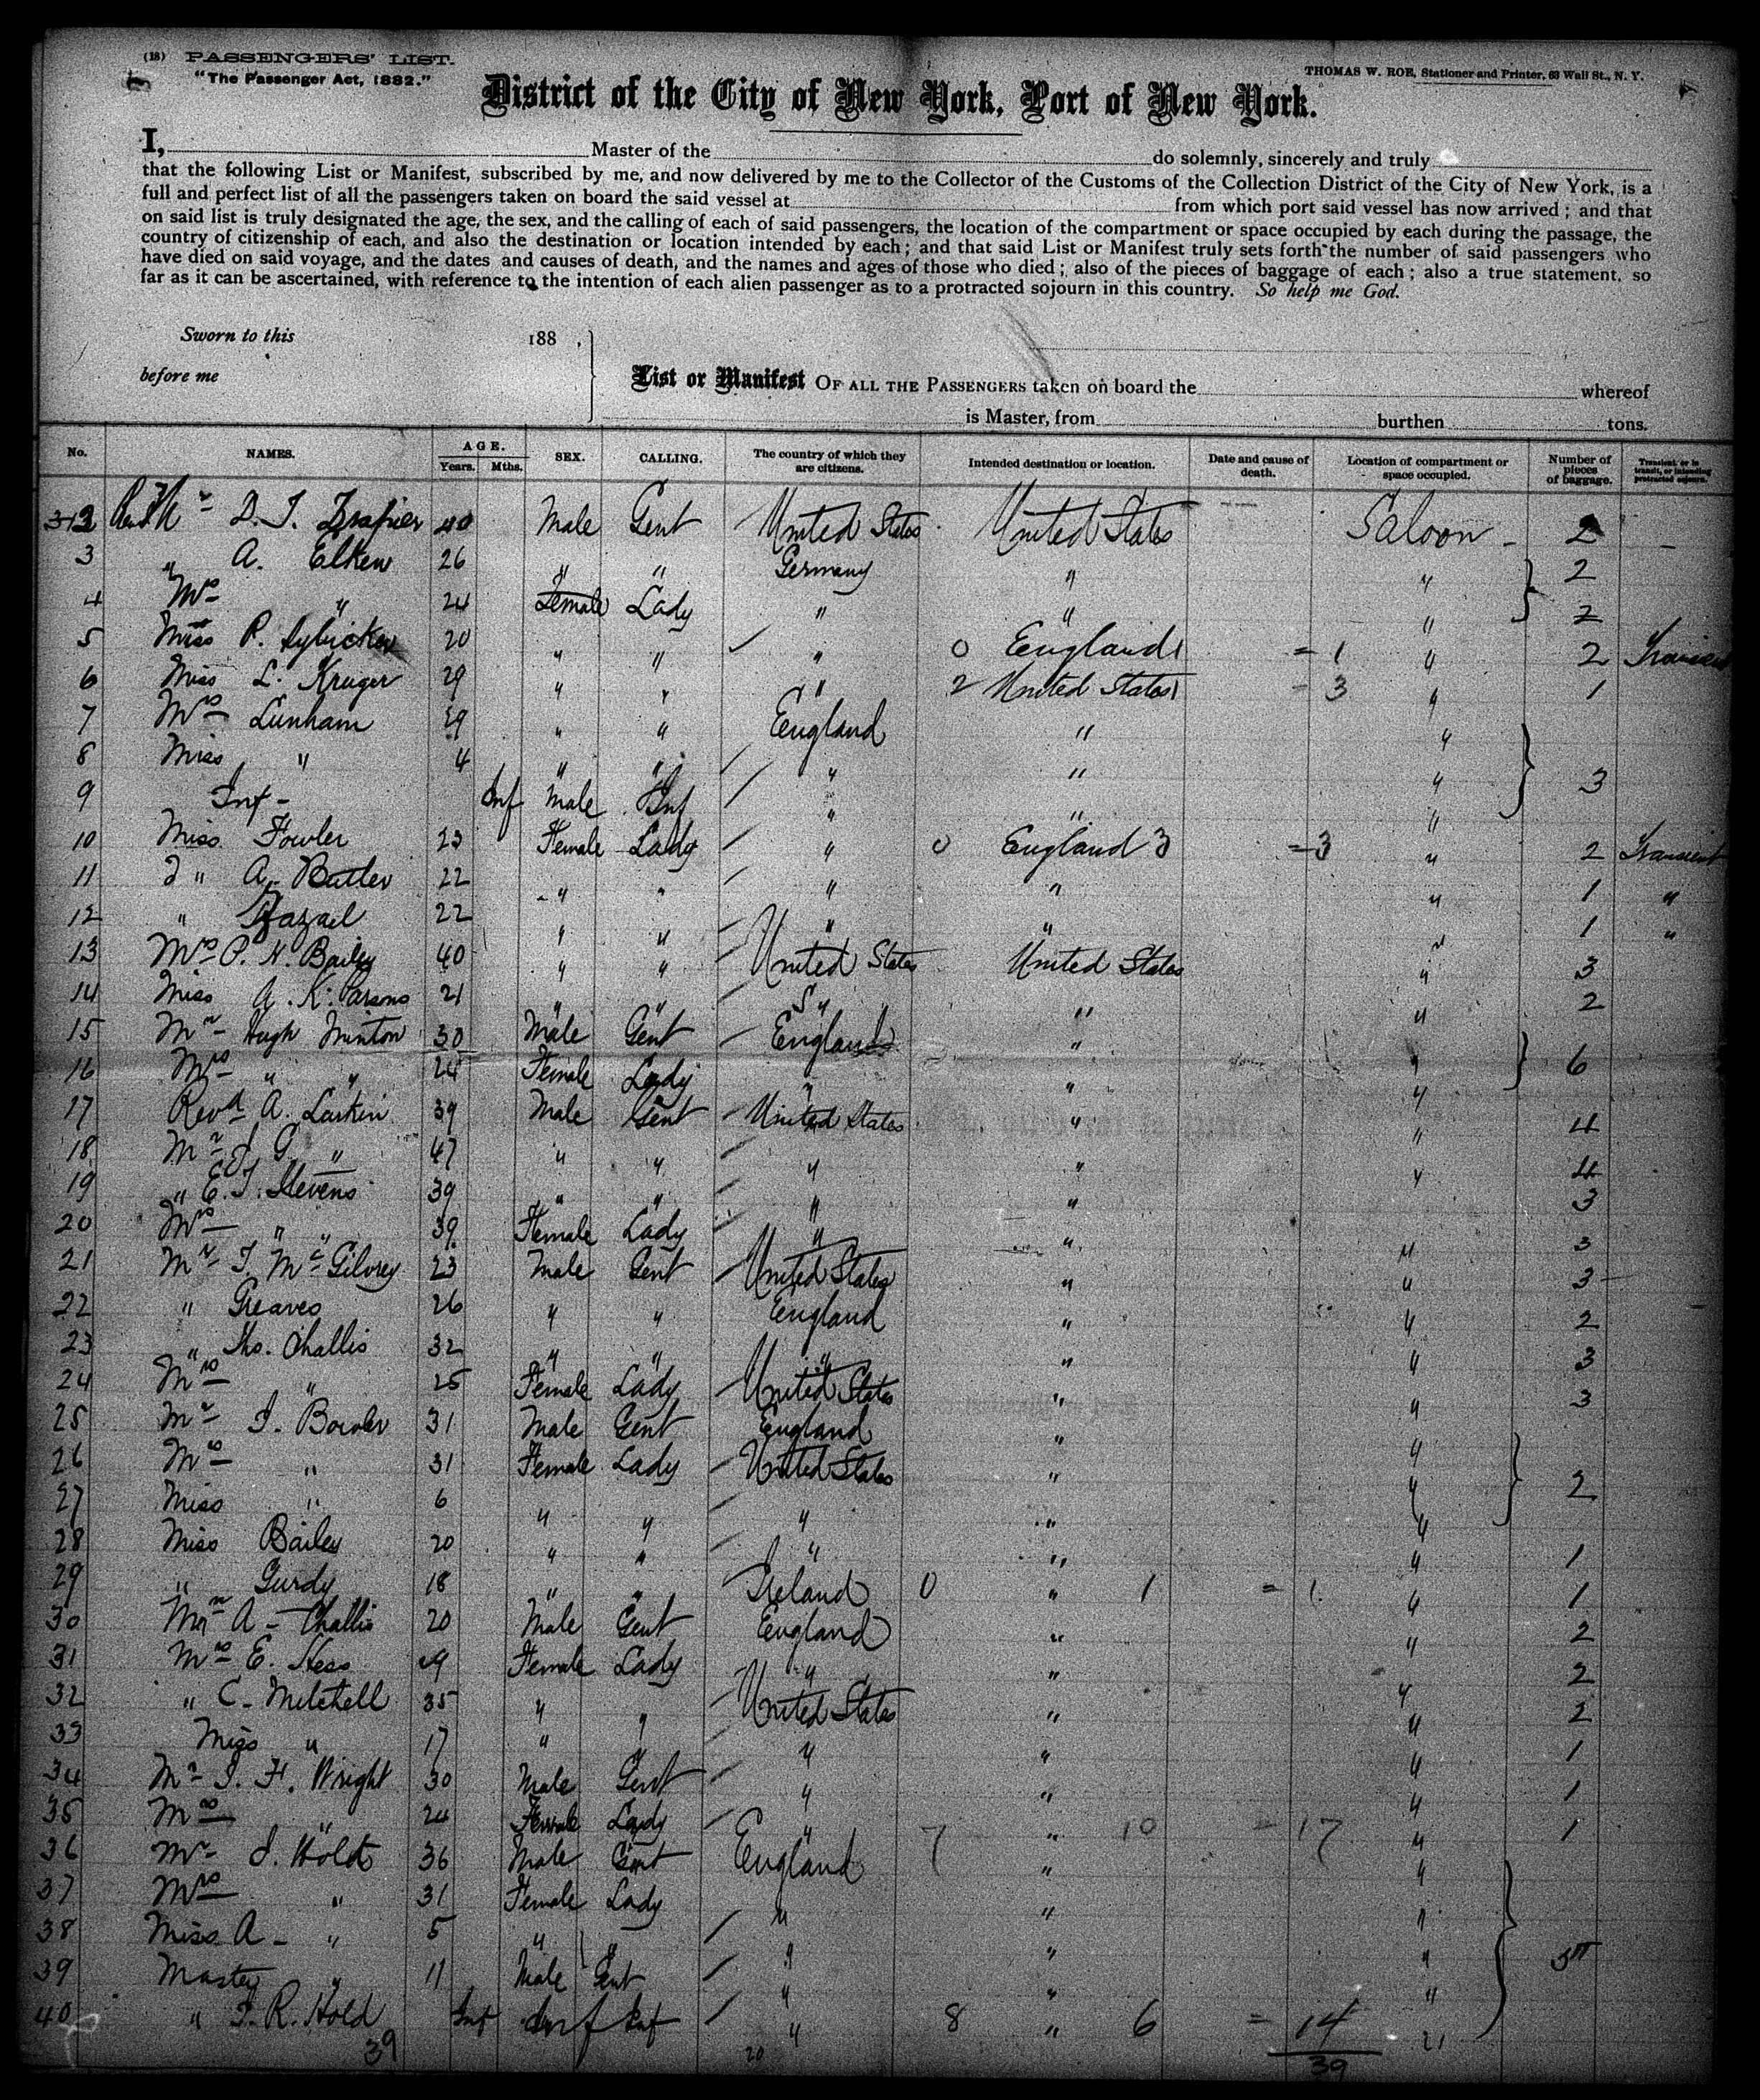 (18) PASSENGERS' LIST.
"The Passenger Act, 1882."
THOMAS W. ROE, Stationer and Printer, 63 Wall St., N. Y.
District of the City of New York, Port of New York.
I, Master of the do solemnly, sincerely and truly
that the following List or Manifest, subscribed by me, and now delivered by me to the Collector of the Customs of the Collection District of the City of New York, is a
full and perfect list of all the passengers taken on board the said vessel at from which port said vessel has now arrived; and that
on said list is truly designated the age, the sex, and the calling of each of said passengers, the location of the compartment or space occupied by each during the passage, the
country of citizenship of each, and also the destination or location intended by each; and that said List or Manifest truly sets forth the number of said passengers who
have died on said voyage, and the dates and causes of death, and the names and ages of those who died; also of the pieces of baggage of each; also a true statement, so
far as it can be ascertained, with reference to the intention of each alien passenger as to a protracted sojourn in this country. So help me God.
Sworn to this 188 ,
before me
List or Manifest OF ALL THE PASSENGERS taken on board the whereof
is Master, from burthen tons.
No. NAMES. AGE. Years. Mths. SEX. CALLING. The country of which they are citizens. Intended destination or location. Date and cause of death. Location of compartment or space occupied. Number of pieces of baggage. Transient, or in transit, or intending protracted sojourn.
2 Mr D. T. 40 Male Gent United States United States Saloon - 2 -
3 " A. Elken 26 " " Germany " " 2
4 Mrs " 24 Female Lady " " " 2
5 Miss P. 20 " " " 0 England 1 = 1 " 2 Transient
6 Miss L. Kruger 29 " " " 2 United States 1 - 3 " 1
7 Mrs Lunham 29 " " England " "
8 Miss " 4 " " " " " 3
9 Inf - Inf Male Inf " " "
10 Miss Fowler 23 Female Lady " 0 England 3 = 3 " 2 Transient
11 " A. Butler 22 " " " " " 1 "
12 " 22 " " " " " 1 "
13 Mrs P. N. Bailey 40 " " United States United States " 3
14 Miss A. K. Parsons 21 " " " " " 2
15 Mr Hugh Minton 30 Male Gent England " "
16 Mrs " " 24 Female Lady " " " 6
17 Revd A. Larkin 39 Male Gent United States " " 4
18 Mr J. G. " 47 " " " " " 4
19 " E. T. Stevens 39 " " " " 3
20 Mrs " " 39 Female Lady " " " 3
21 Mr T. McGilvrey 23 Male Gent United States " " 3
22 " Greaves 26 " " England " " 2
23 " Tho. Challis 32 " " " " " 3
24 Mrs " 25 Female Lady United States " " 3
25 Mr J. Bowler 31 Male Gent England " "
26 Mrs " 31 Female Lady United States " " 2
27 Miss " 6 " " " " "
28 Miss Bailey 20 " " " " " 1
29 " Gurdy 18 " " Ireland 0 " 1 = 1 " 1
30 Mr A - Challis 20 Male Gent England " " 2
31 Mrs E. Hess Female Lady " " " 2
32 " C - Mitchell 35 " " United States " " 2
33 Miss " 17 " " " " " 1
34 Mr J. H. Wright 30 Male Gent " " " 1
35 Mrs " 24 Female Lady " 7 " 10 = 17 " 1
36 Mr J. Hold 36 Male Gent England " "
37 Mrs " 31 Female Lady " " "
38 Miss A - " 5 " " " " " 5
39 Master " 11 Male Gent " " "
40 " J. R. Hold Inf Inf Inf " 8 " 6 = 14 "
39 20 39